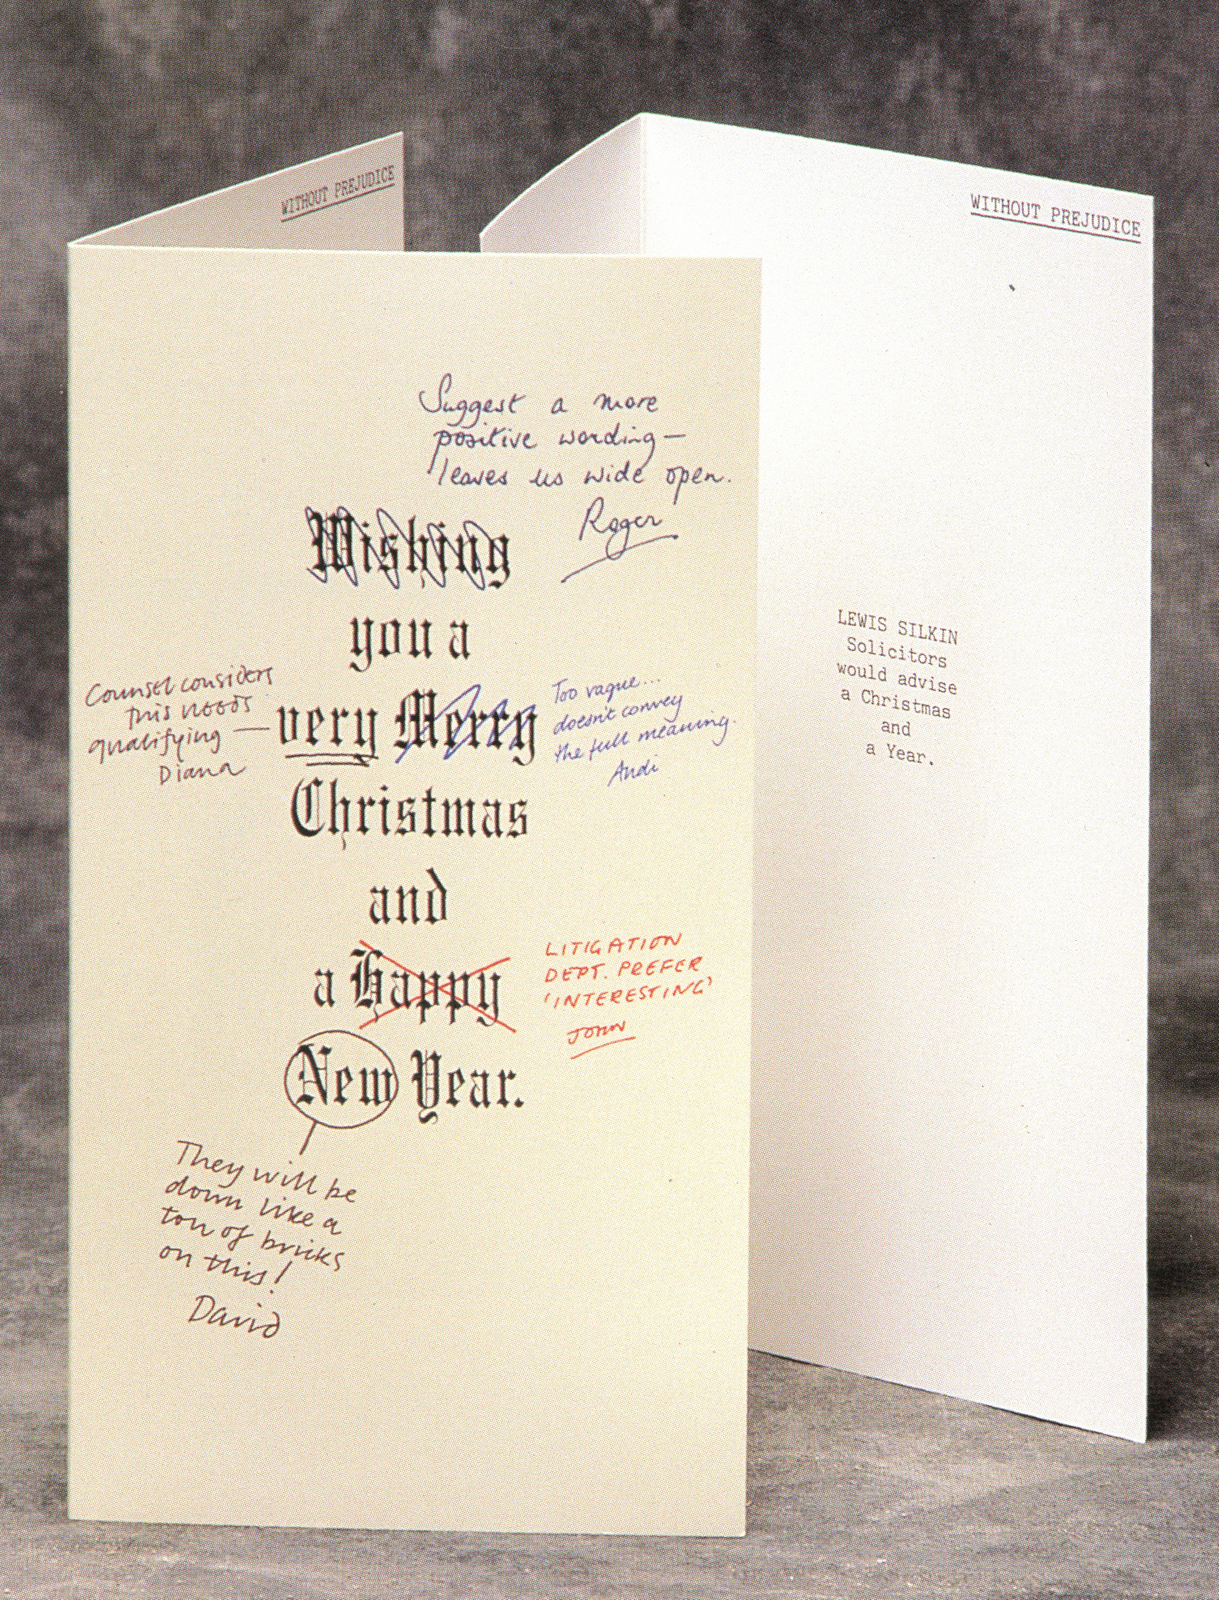 WITHOUT PREJUDICE
WITHOUT PREJUDICE
Suggest a more
positive wording—
leaves us wide open.
Roger
Wishing
you a
Counsel considers
this needs
qualifying —
Diana
very Merry
Too vague...
doesn't convey
the full meaning.
Andi
Christmas
and
a Happy
LITIGATION
DEPT. PREFER
'INTERESTING'
JOHN
New Year.
They will be
down like a
ton of bricks
on this!
David
LEWIS SILKIN
Solicitors
would advise
a Christmas
and
a Year.